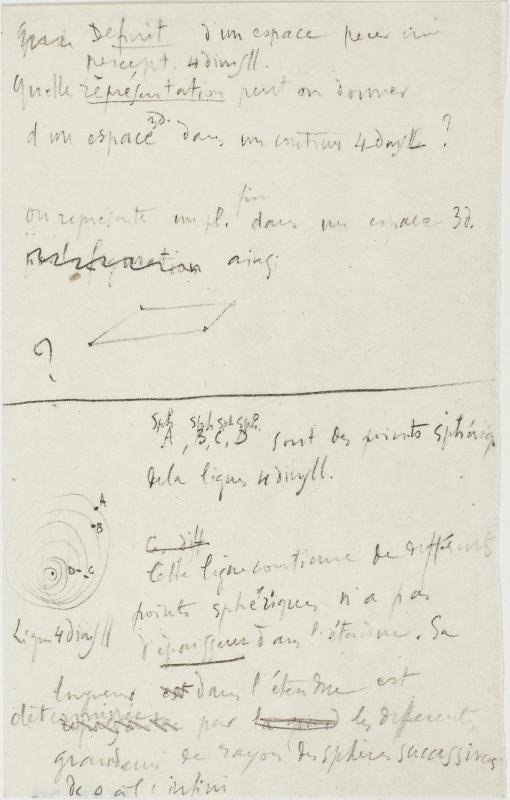 Definit d'un espace pour un
percept. 4dimsll.
Quelle représentation peut on donner
d'un espace 3d. dans un continu 4dimsll ?
on représente un pl. fini dans un espace 3d.
par figuration ainsi
?
Sph Sph Sph Sph.
A, B, C, D sont des points sphériq
de la ligne 4dimsll.
A
B
D C
Ce diff
Cette ligne continue de différents
points sphériques n'a pas
Ligne 4dimsll
d'épaisseur dans l'étendue. Sa
longueur est dans l'étendue est
déterminée par les différents
grandeurs de rayons des sphères successives
de 0 à l'infini